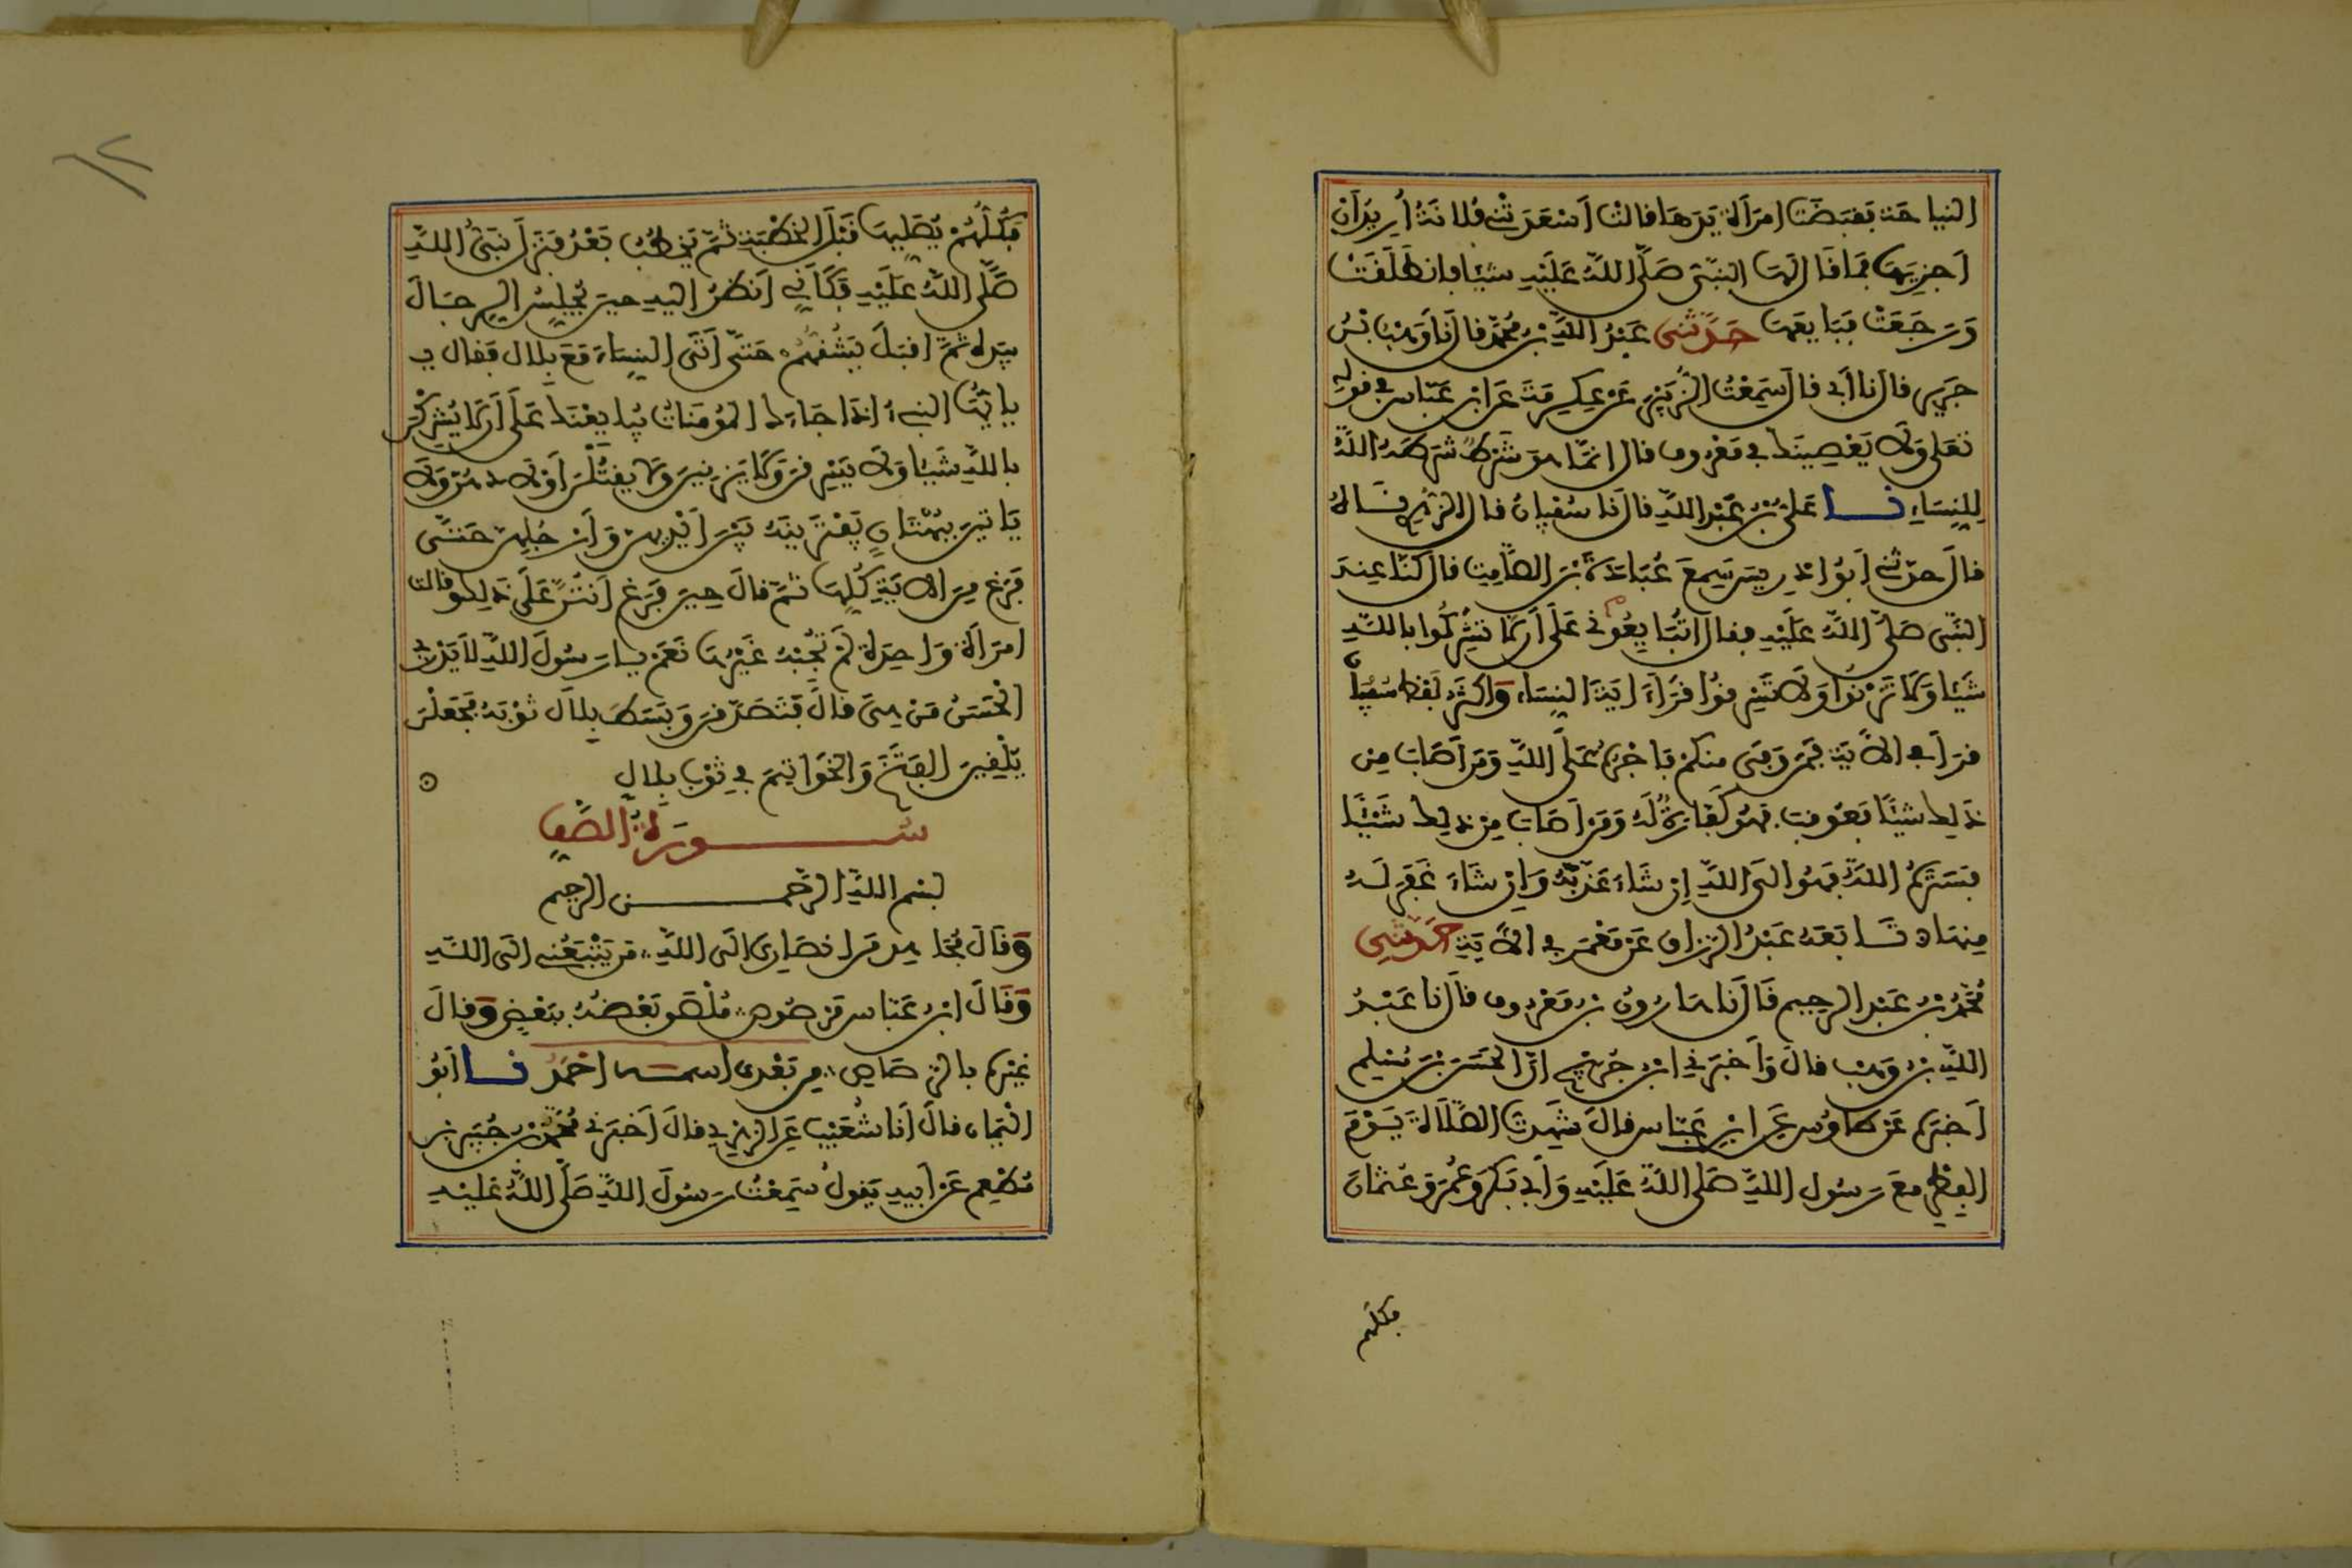 النياحة فقبضت امرأة يدها فقالت أسعدتني فلانة أريد أن
أجزيها فما قال لها النبي صلى الله عليه شيئا فانطلقت
ورجعت فبايعها حدثني عبد الله بن محمد قال نا وهب بن
جرير قال نا أبي قال سمعت الزبير عن عكرمة عن ابن عباس في قوله
تعلى ولا يعصينك في معروف قال إنما هو شرط شرطه الله
للنساء نا علي بن عبد الله قال نا سفيان قال الزهري ناه
قال حدثني أبو إدريس سمع عبادة بن الصامت قال كنا عند
النبي صلى الله عليه فقال أتبايعوني على أن لا تشركوا بالله
شيئا ولا تزنوا ولا تسرقوا قرأ آية النساء وأكثر لفظ سفيان
قرأ في الآية فمن وفى منكم فأجره على الله ومن أصاب من
ذلك شيئا فعوقب فهو كفارة له ومن أصاب من ذلك شيئا
فستره الله فهو إلى الله إن شاء عذبه وإن شاء غفر له
منها تابعه عبد الرزاق عن معمر في الآية حدثني
محمد بن عبد الرحيم قال نا هارون بن معروف قال نا عبد
الله بن وهب قال وأخبرني ابن جريج أن الحسن بن مسلم
أخبره عن طاوس عن ابن عباس قال شهدت الصلاة يوم
الفطر مع رسول الله صلى الله عليه وأبي بكر وعمر وعثمان
فكلهم
فكلهم يصليها قبل الخطبة ثم يخطب بعد فنزل نبي الله
صلى الله عليه فكأني أنظر إليه حين يجلس الرجال
بيده ثم أقبل يشقهم حتى أتى النساء مع بلال فقال ي
يايها النبيء إذا جاءك المؤمنات يبايعنك على أن لا يشركن
بالله شيئا ولا يسرقن ولا يزنين ولا يقتلن أولادهن ولا
ياتين ببهتان يفترينه بين أيديهن وأرجلهن حتى
فرغ من الآية كلها ثم قال حين فرغ أنتن على ذلك وقالت
امرأة واحدة لم يجبه غيرها نعم يا رسول الله لا يدري
الحسن من هي قال فتصدقن وبسط بلال ثوبه فجعلن
يلقين الفتخ والخواتيم في ثوب بلال
سورة الصف
بسم الله الرحمن الرحيم
وقال مجاهد من أنصاري إلى الله من يتبعني إلى الله
وقال ابن عباس مرصوص ملصق بعضه ببعض وقال
غيره بالرصاص من بعدي اسمه أحمد نا أبو
اليمان قال أنا شعيب عن الزهري قال أخبرني محمد بن جبير بن
مطعم عن أبيه يقول سمعت رسول الله صلى الله عليه